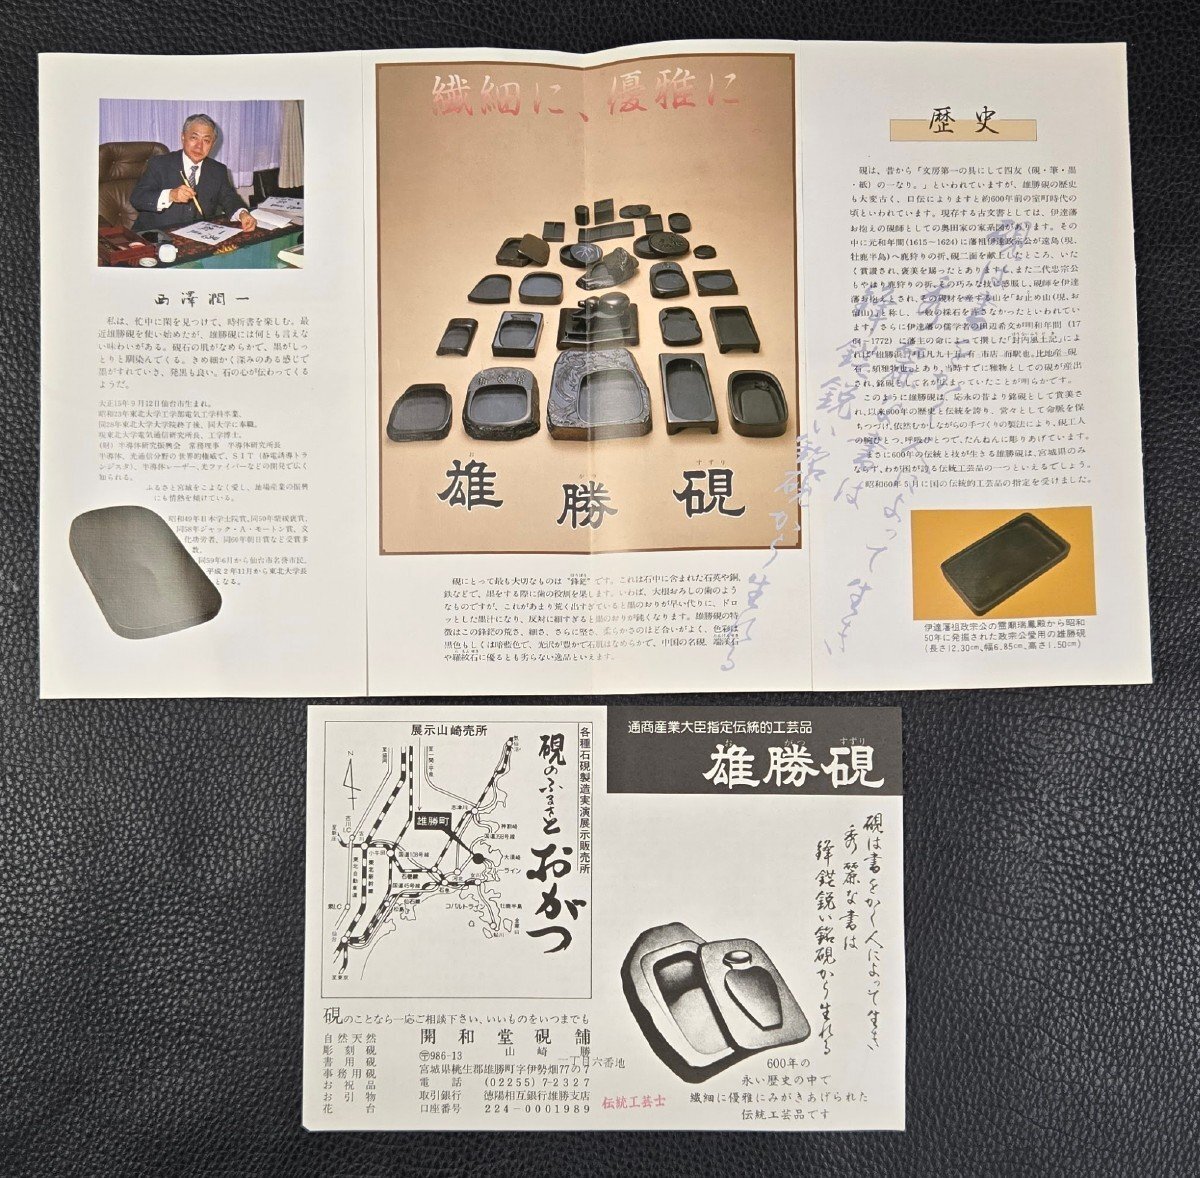 西澤潤一
私は、忙中に閑を見つけて、時折書を楽しむ。最
近雄勝硯を使い始めたが、雄勝硯には何とも言えな
い味わいがある。硯石の肌がなめらかで、墨がしっ
とりと馴染んでくる。きめ細かく深みのある感じで
墨がすれていき、発墨も良い。石の心が伝わってくる
ようだ。
大正15年9月12日仙台市生まれ。
昭和23年東北大学工学部電気工学科卒業。
同28年東北大学大学院終了後、同大学に奉職。
現東北大学電気通信研究所長、工学博士。
(財)半導体研究振興会 常務理事 半導体研究所長
半導体、光通信分野の世界的権威で、SIT(静電誘導トラ
ンジスタ)、半導体レーザー、光ファイバーなどの開発で広く
知られる。
ふるさと宮城をこよなく愛し、地場産業の振興
にも情熱を傾けている。
昭和49年日本学士院賞、同50年紫綬褒賞、
同58年ジャック・A・モートン賞、文
化功労者、同60年朝日賞など受賞多
数。
同59年6月から仙台市名誉市民。
平成2年11月から東北大学長
となる。
繊細に、優雅に
雄勝硯
お がつ すずり
硯にとって最も大切なものは“鋒鋩”です。これは石中に含まれた石英や銅、
鉄などで、墨をする際に歯の役割を果します。いわば、大根おろしの歯のよう
なものですが、これがあまり荒く出すぎていると墨のおりが早い代りに、ドロ
ッとした墨汁になり、反対に細すぎると墨のおりが鈍くなります。雄勝硯の特
徴はこの鋒鋩の荒さ、細さ、さらに堅さ、柔らかさのほど合いがよく、色彩は
黒色もしくは暗藍色で、光沢が豊かで石肌はなめらかで、中国の名硯、端渓石
や羅紋石に優るとも劣らない逸品といえます。
歴史
硯は、昔から「文房第一の具にして四友(硯・筆・墨
・紙)の一なり。」といわれていますが、雄勝硯の歴史
も大変古く、口伝によりますと約600年前の室町時代の
頃といわれています。現存する古文書としては、伊達藩
お抱えの硯師としての奥田家の家系図があります。その
中に元和年間(1615~1624)に藩祖伊達政宗公が遠島(現、
牡鹿半島)へ鹿狩りの折、硯二面を献上したところ、いた
く賞讃され、褒美を賜ったとあります。また二代忠宗公
もやはり鹿狩りの折、その巧みな技に感服し、硯師を伊達
藩お抱えとされ、その硯材を産する山を「お止め山」(現、お
留山)と称し、一般の採石を許さなかったといわれてい
ます。さらに伊達藩の儒学者の田辺希文が明和年間(17
64~1772)に藩主の命によって撰した「封内風土記」によ
このように雄勝硯は、応永の昔より銘硯として賞美さ
れ、以来600年の歴史と伝統を誇り、営々として命脈を保
ちつづけ、依然むかしながらの手づくりの製法により、硯工人
の腕ひとつ、呼吸ひとつで、たんねんに彫りあげています。
まさに600年の伝統と技が生きる雄勝硯は、宮城県のみ
ならず、わが国が誇る伝統工芸品の一つといえるでしょう。
昭和60年5月に国の伝統的工芸品の指定を受けました。
伊達藩祖政宗公の霊廟瑞鳳殿から昭和
50年に発掘された政宗公愛用の雄勝硯
(長さ12.30cm、幅6.85cm、高さ1.50cm)
硯は書をかく人によって生き
秀麗な書は
鋒鋩鋭い銘硯から生れる
各種石硯製造実演展示販売所
展示山崎売所
硯のふるさと
おがつ
雄勝町
志津川
国道398号線
国道108号線
国道45号線
石巻線
仙石線
東北新幹線
東北自動車道
小牛田
古川I.C
コバルトライン
牡鹿半島
金華山
鮎川
女川
松島
仙台
至東京
硯のことなら一応ご相談下さい、いいものをいつまでも
自然天然
彫刻硯
書用硯
事務用硯
お祝品
お引物
花台
開和堂硯舗
山崎勝
〒986-13
一丁目六番地
宮城県桃生郡雄勝町字伊勢畑77の7
電話 (02255)7-2327
取引銀行 徳陽相互銀行雄勝支店
口座番号 224-0001989
通商産業大臣指定伝統的工芸品
雄勝硯
お がつ すずり
硯は書をかく人によって生き
秀麗な書は
鋒鋩鋭い銘硯から生れる
600年の
永い歴史の中で
繊細に優雅にみがきあげられた
伝統工芸品です
伝統工芸士